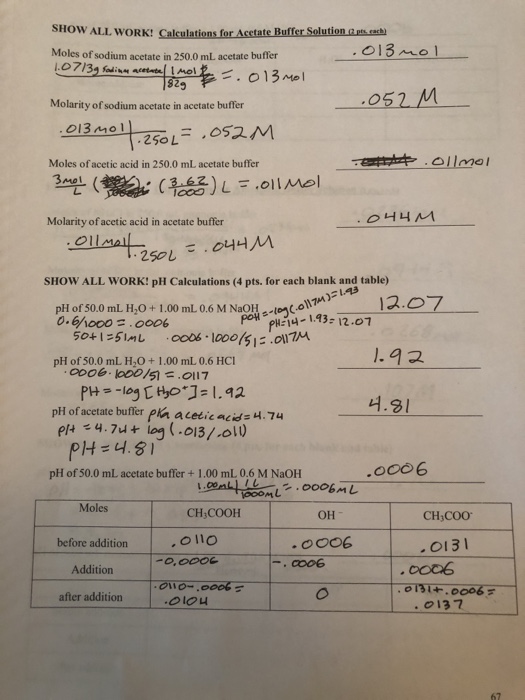 SHOW ALL WORK! Calculations for Acetate Buffer Solution (2 pts. each)
Moles of sodium acetate in 250.0 mL acetate buffer .013mol
1.0713g Sodium acetate | 1mol
82g = .013mol
Molarity of sodium acetate in acetate buffer .052 M
.013mol | .250L = .052M
Moles of acetic acid in 250.0 mL acetate buffer .011mol
3mol/L (3.62/1000) L = .011Mol
Molarity of acetic acid in acetate buffer .044M
.011mol .250L = .044M
SHOW ALL WORK! pH Calculations (4 pts. for each blank and table)
pH of 50.0 mL H₂O + 1.00 mL 0.6 M NaOH pOH = -log(.0117M) = 1.93 12.07
0.6/1000 = .0006 pH = 14-1.93 = 12.07
50+1=51mL .0006·1000/51 = .0117M
pH of 50.0 mL H₂O + 1.00 mL 0.6 HCl 1.92
.0006·1000/51 = .0117
pH = -log [H₃O⁺] = 1.92
pH of acetate buffer pKa acetic acid = 4.74 4.81
pH = 4.74 + log (.013/.011)
pH = 4.81
pH of 50.0 mL acetate buffer + 1.00 mL 0.6 M NaOH .0006
1.00mL | 1L
1000mL = .0006mL
Moles CH₃COOH OH⁻ CH₃COO⁻
before addition .0110 .0006 .0131
Addition -0.0006 -.0006 .0006
after addition .0110-.0006= .0104 0 .0131+.0006= .0137
67